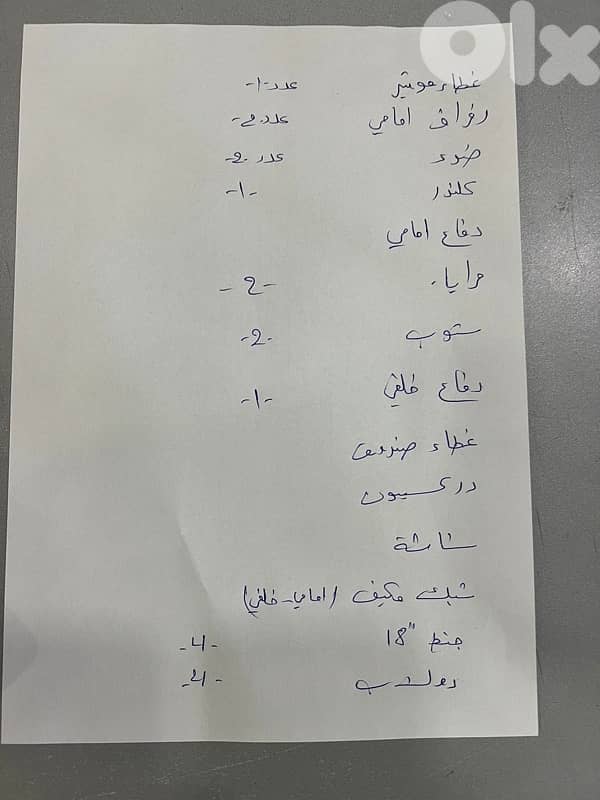 olx
غطاء موتير عدد -1-
رفراف امامي عدد -2-
ضوء عدد -2-
كلندر -1-
دفاع امامي
مرايا. -2-
ستوب -2-
دفاع خلفي -1-
غطاء صندوق
دركسيون
شاشة
شبك مكيف (امامي - خلفي)
جنط 18" -4-
دولاب -4-